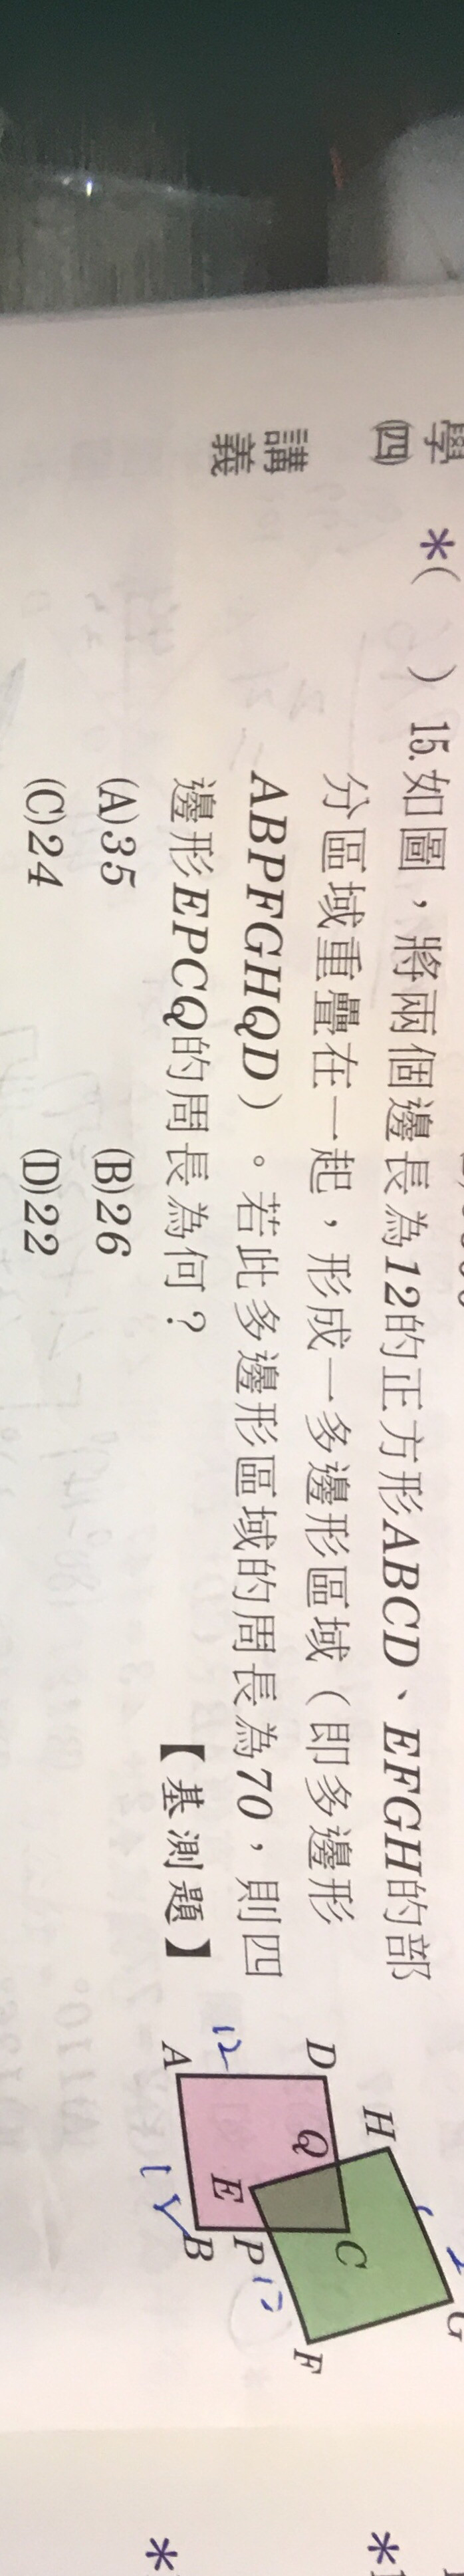 學(四)
講義
*(　) 15.如圖，將兩個邊長為12的正方形ABCD、EFGH的部
分區域重疊在一起，形成一多邊形區域（即多邊形
ABPFGHQD）。若此多邊形區域的周長為70，則四
邊形EPCQ的周長為何？【基測題】
(A)35 (B)26
(C)24 (D)22
H
G
D
Q
C
12
E
P
F
A
B
12
*
*